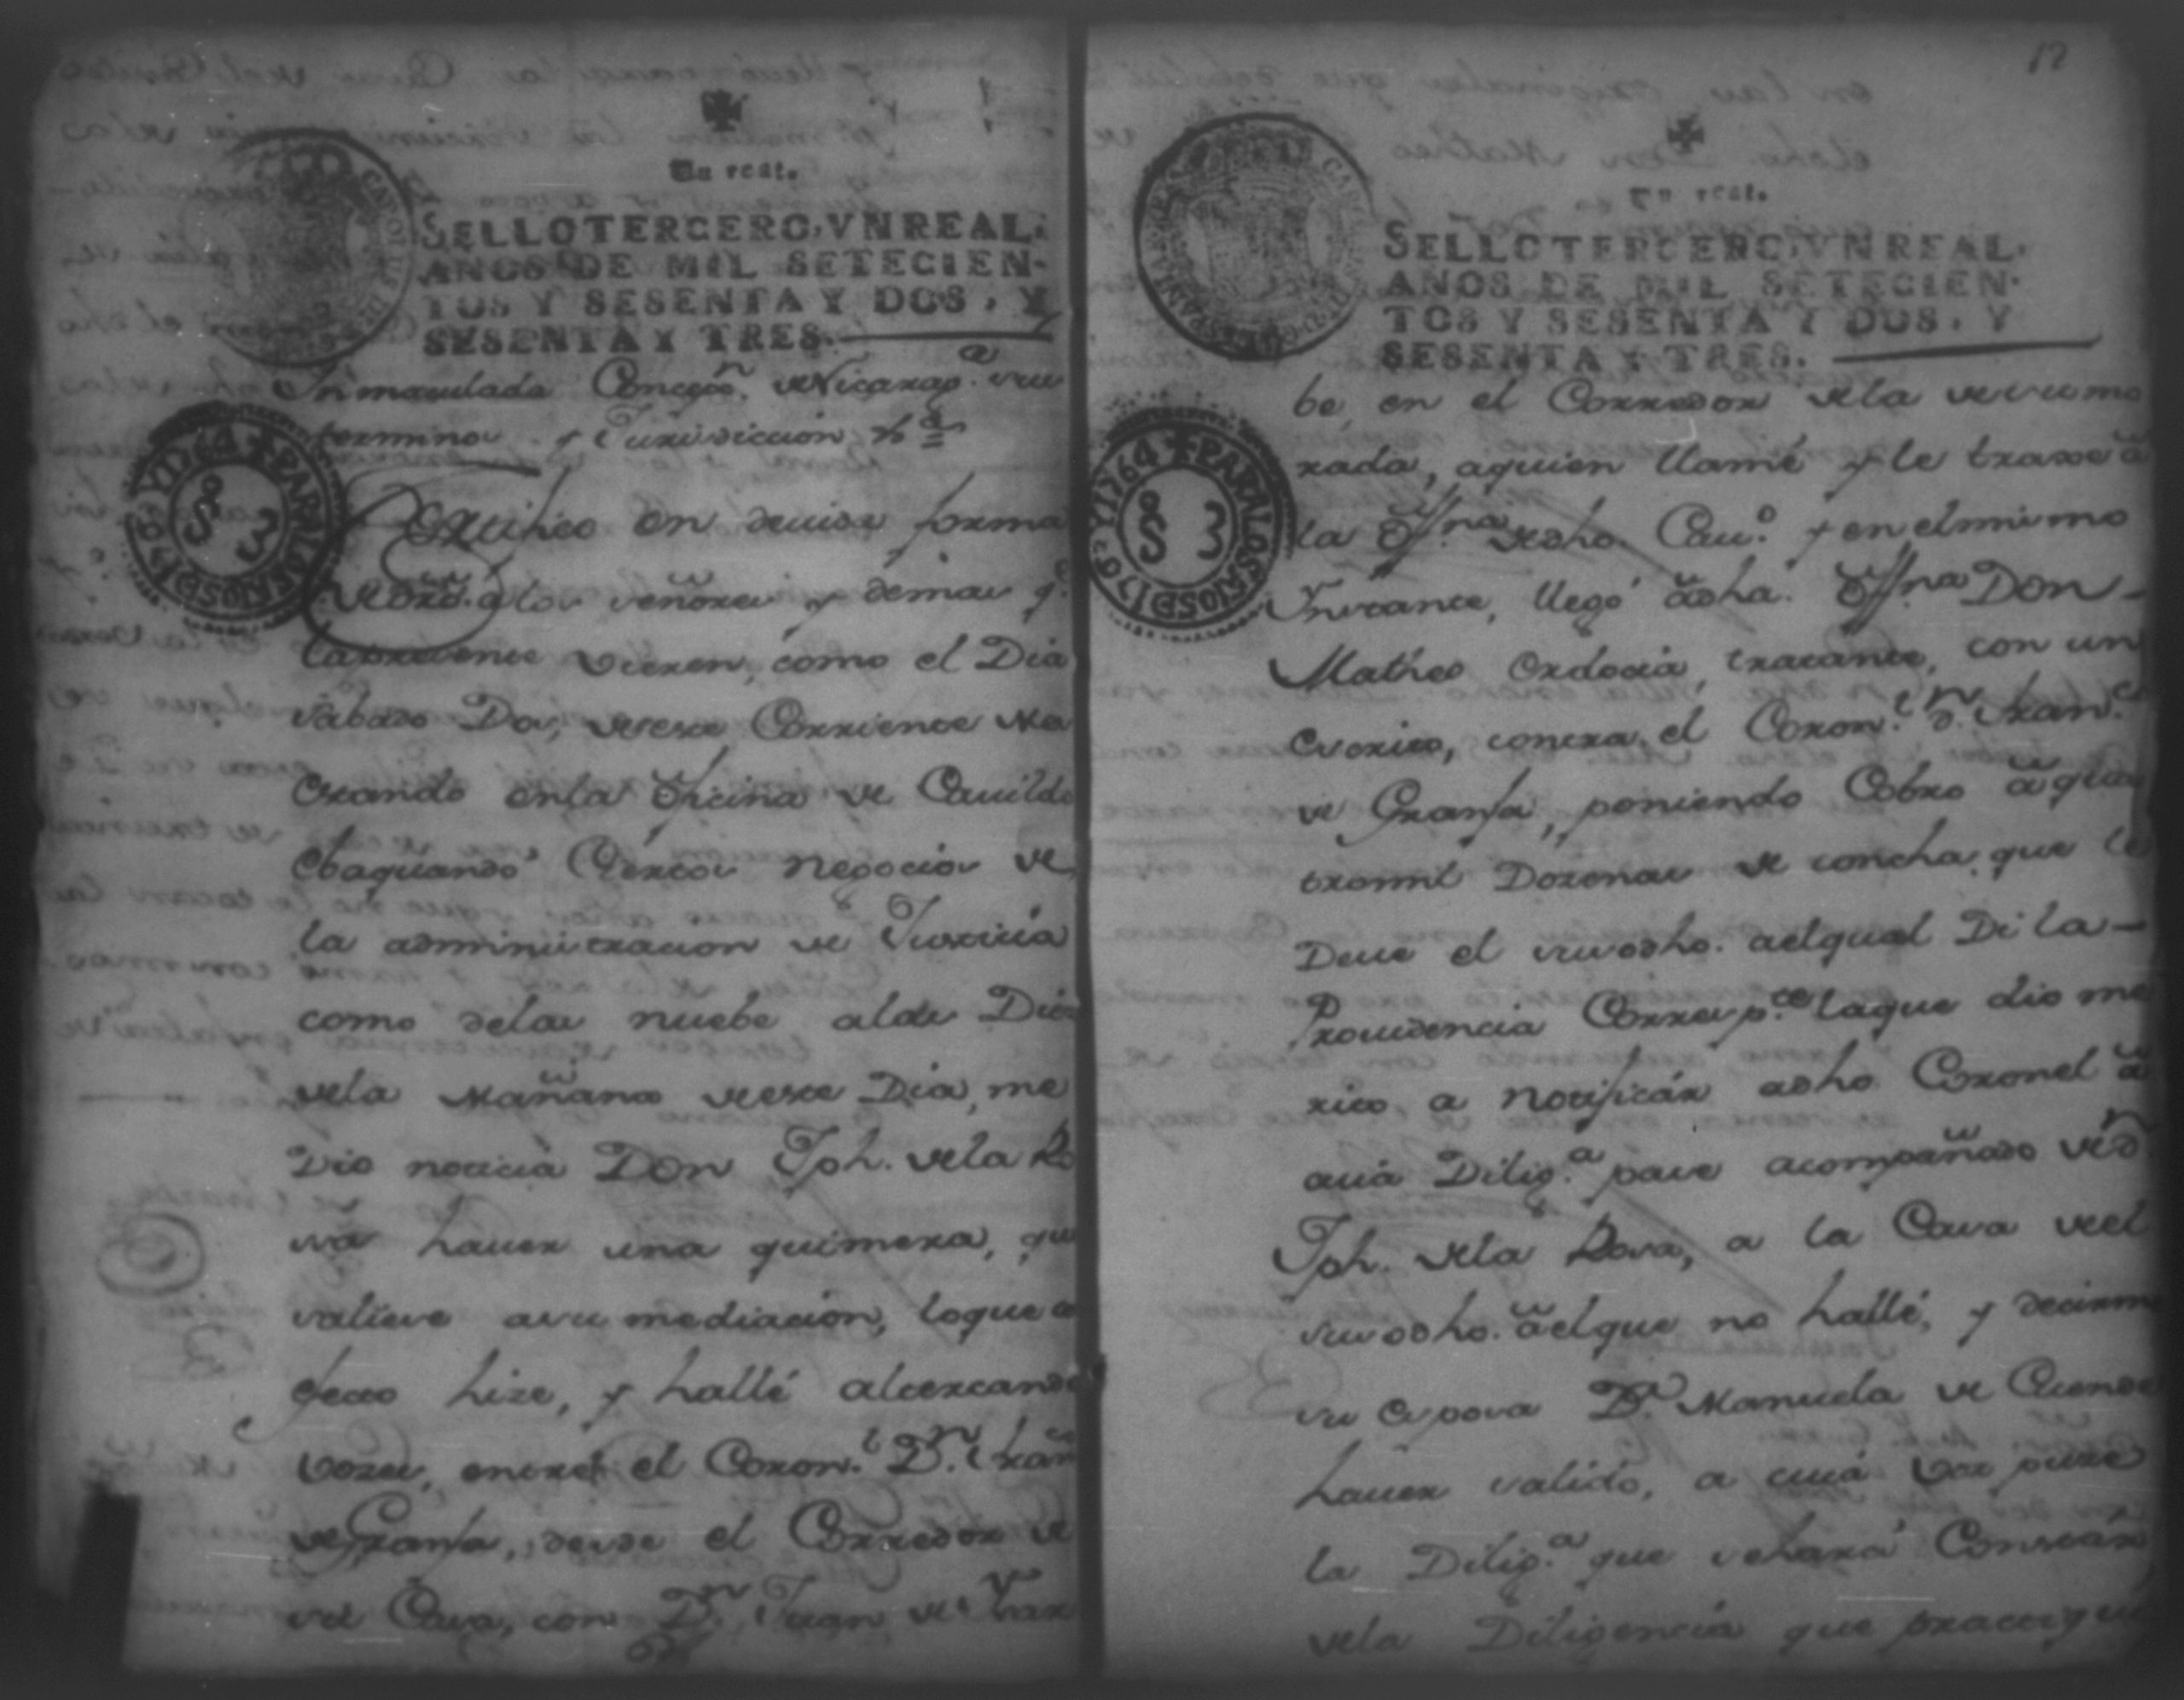 Un real.
SELLO TERCERO, VN REAL.
AÑOS DE MIL SETECIEN-
TOS Y SESENTA Y DOS, Y
SESENTA Y TRES.
PARA LOS AÑOS DE 1763 Y 1764
S 3
Inmaculada Concepⁿ. de Nicarag.ᵃ su
termino y Jurisdiccion &ᵃ
Certifico en devida forma
de dro. a los señores y demas q.ᵉ
la presente vieren, como el Dia
sabado Dos, de este Corriente Me
estando en la oficina de Cauildo
Ebaquando Ciertos negocios de
la administracion de Justicia
como de las nuebe a las Dies
de la Mañana de este Dia, me
dio noticia Don Jph. de la Ro
sa hauer una quimera, que
saliese a su mediacion, lo que e
fecto hize, y hallé altercando
vozes, entre el Coron.ˡ D.ⁿ Fran
de Granja, desde el Corredor de
su Casa, con D.ⁿ Juan de
12
Un real.
SELLO TERCERO, VN REAL.
AÑOS DE MIL SETECIEN-
TOS Y SESENTA Y DOS, Y
SESENTA Y TRES.
PARA LOS AÑOS DE 1763 Y 1764
S 3
be, en el Corredor de la de su mo
rada, a quien llamé y le traxe a
la offⁿᵃ de dho. Cau.º y en el mismo
Instante, llegó a dha. offⁿᵃ Don
Matheo Ordocia, tratante, con un
escrito, contra el Coron.ˡ d.ⁿ Fran.ᶜᵒ
de Granja, poniendo Cobro a qua
tromil Dozenas de concha, que le
Deue el susodho. a el qual Di la
Prouidencia Corresp.ᵗᵉ la que dio me
rito a notificár a dho. Coronel a
cuia Dilig.ᵃ pase acompañado de d.ⁿ
Jph. de la Rosa, a la Casa de el
susodho. a el que no hallé, y decirme
su esposa D.ᵃ Manuela de
hauer salido, a cuia vos puse
la Dilig.ᵃ que se hará Constár
de la Diligencia que practiqué